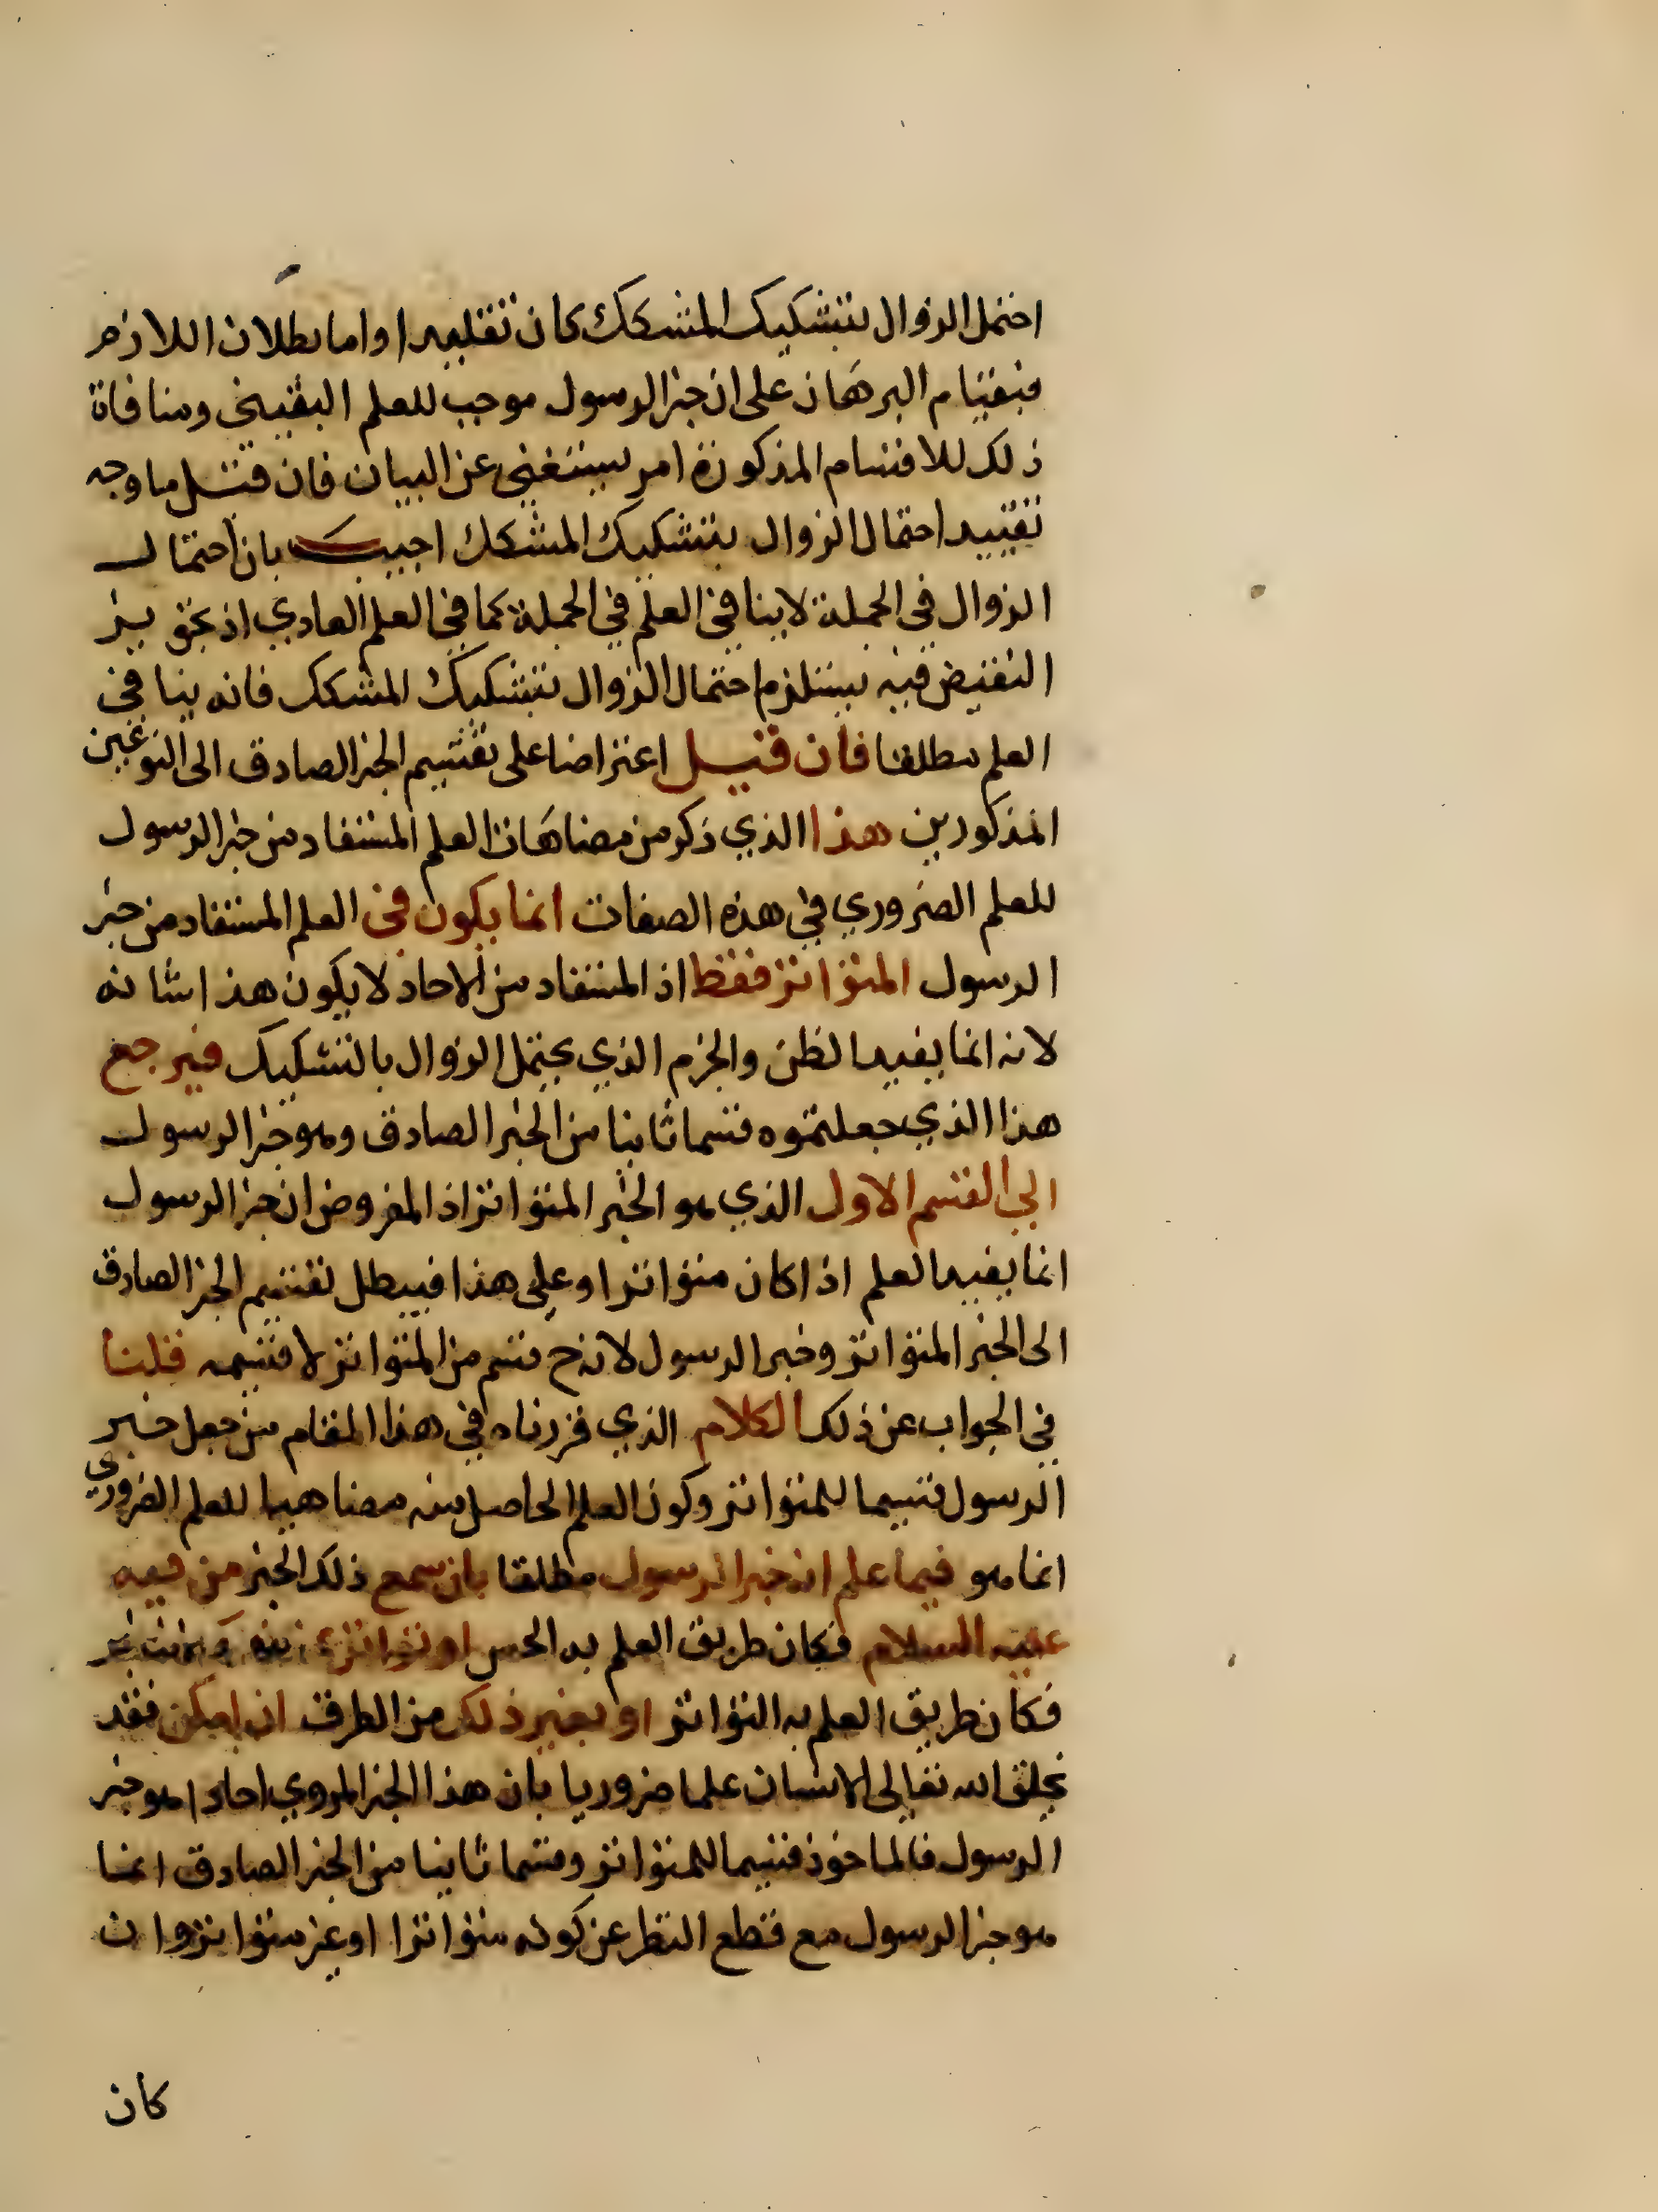 احتمل الزوال بتشكيك المشكك كان تقليدا واما بطلان اللازم
فبقيام البرهان على ان خبر الرسول موجب للعلم اليقيني ومنافاة
ذلك للاقسام المذكورة امر يستغنى عن البيان فان قيل ما وجه
تقييد احتمال الزوال بتشكيك المشكك اجيب بان احتمال
الزوال في الجملة لا ينافي العلم في الجملة كما في العلم العادي اذ تجويز
النقيض فيه يستلزم احتمال الزوال بتشكيك المشكك فانه ينافي
العلم مطلقا فان قيل اعتراضا على تقسيم الخبر الصادق الى النوعين
المذكورين هذا الذي ذكر من مضاهاة العلم المستفاد من خبر الرسول
للعلم الضروري في هذه الصفات انما يكون في العلم المستفاد من خبر
الرسول المتواتر فقط اذ المستفاد من الاحاد لا يكون هذا شانه
لانه انما يفيد الظن والجزم الذي يحتمل الزوال بالتشكيك فيرجع
هذا الذي جعلتموه قسما ثانيا من الخبر الصادق وهو خبر الرسول
الى القسم الاول الذي هو الخبر المتواتر اذ المفروض ان خبر الرسول
انما يفيد العلم اذا كان متواترا وعلى هذا فيبطل تقسيم الخبر الصادق
الى الخبر المتواتر وخبر الرسول لانه ح قسم من المتواتر لا قسيمه قلنا
في الجواب عن ذلك الكلام الذي قررناه في هذا المقام من جعل خبر
الرسول قسيما للمتواتر وكون العلم الحاصل منه مضاهيا للعلم الضروري
انما هو فيما علم انه خبر الرسول مطلقا بان سمع ذلك الخبر من فيه
عليه السلام فكان طريق العلم به الحس او تواتر عنه
فكان طريق العلم به التواتر او بغير ذلك من الطرق ان امكن فقد
يخلق الله تعالى للانسان علما ضروريا بان هذا الخبر المروي احادا هو خبر
الرسول فالماخوذ قسيما للمتواتر وقسما ثانيا من الخبر الصادق انما
هو خبر الرسول مع قطع النظر عن كونه متواترا او غير متواتر وان
كان